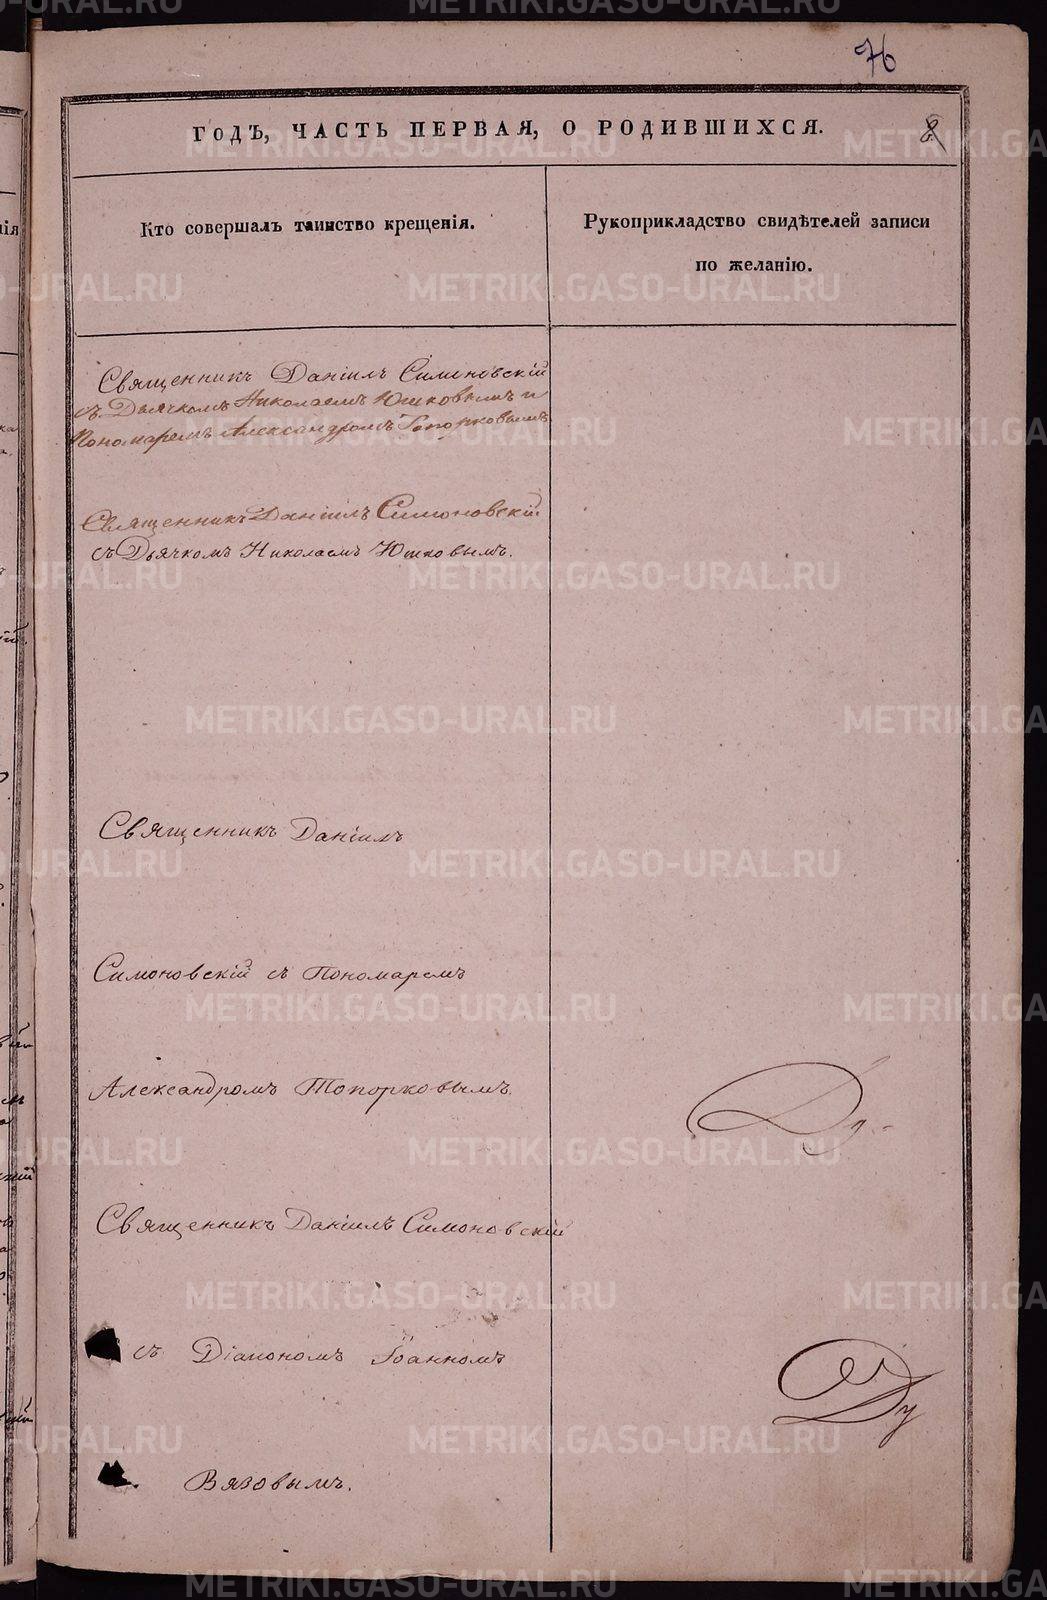 76
ГОДЪ, ЧАСТЬ ПЕРВАЯ, О РОДИВШИХСЯ.
8
Кто совершалъ таинство крещенія.
Рукоприкладство свидѣтелей записи
по желанію.
Священникъ Даніилъ Симоновскій
съ Дьячкомъ Николаемъ Юшковымъ и
Пономаремъ Александромъ Топорковымъ
Священникъ Даніилъ Симоновскій
съ Дьячкомъ Николаемъ Юшковымъ.
Священникъ Даніилъ
Симоновскій съ Пономаремъ
Александромъ Топорковымъ.
Священникъ Даніилъ Симоновскій
съ Діакономъ Іоанномъ
Вязовымъ.
METRIKI.GASO-URAL.RU